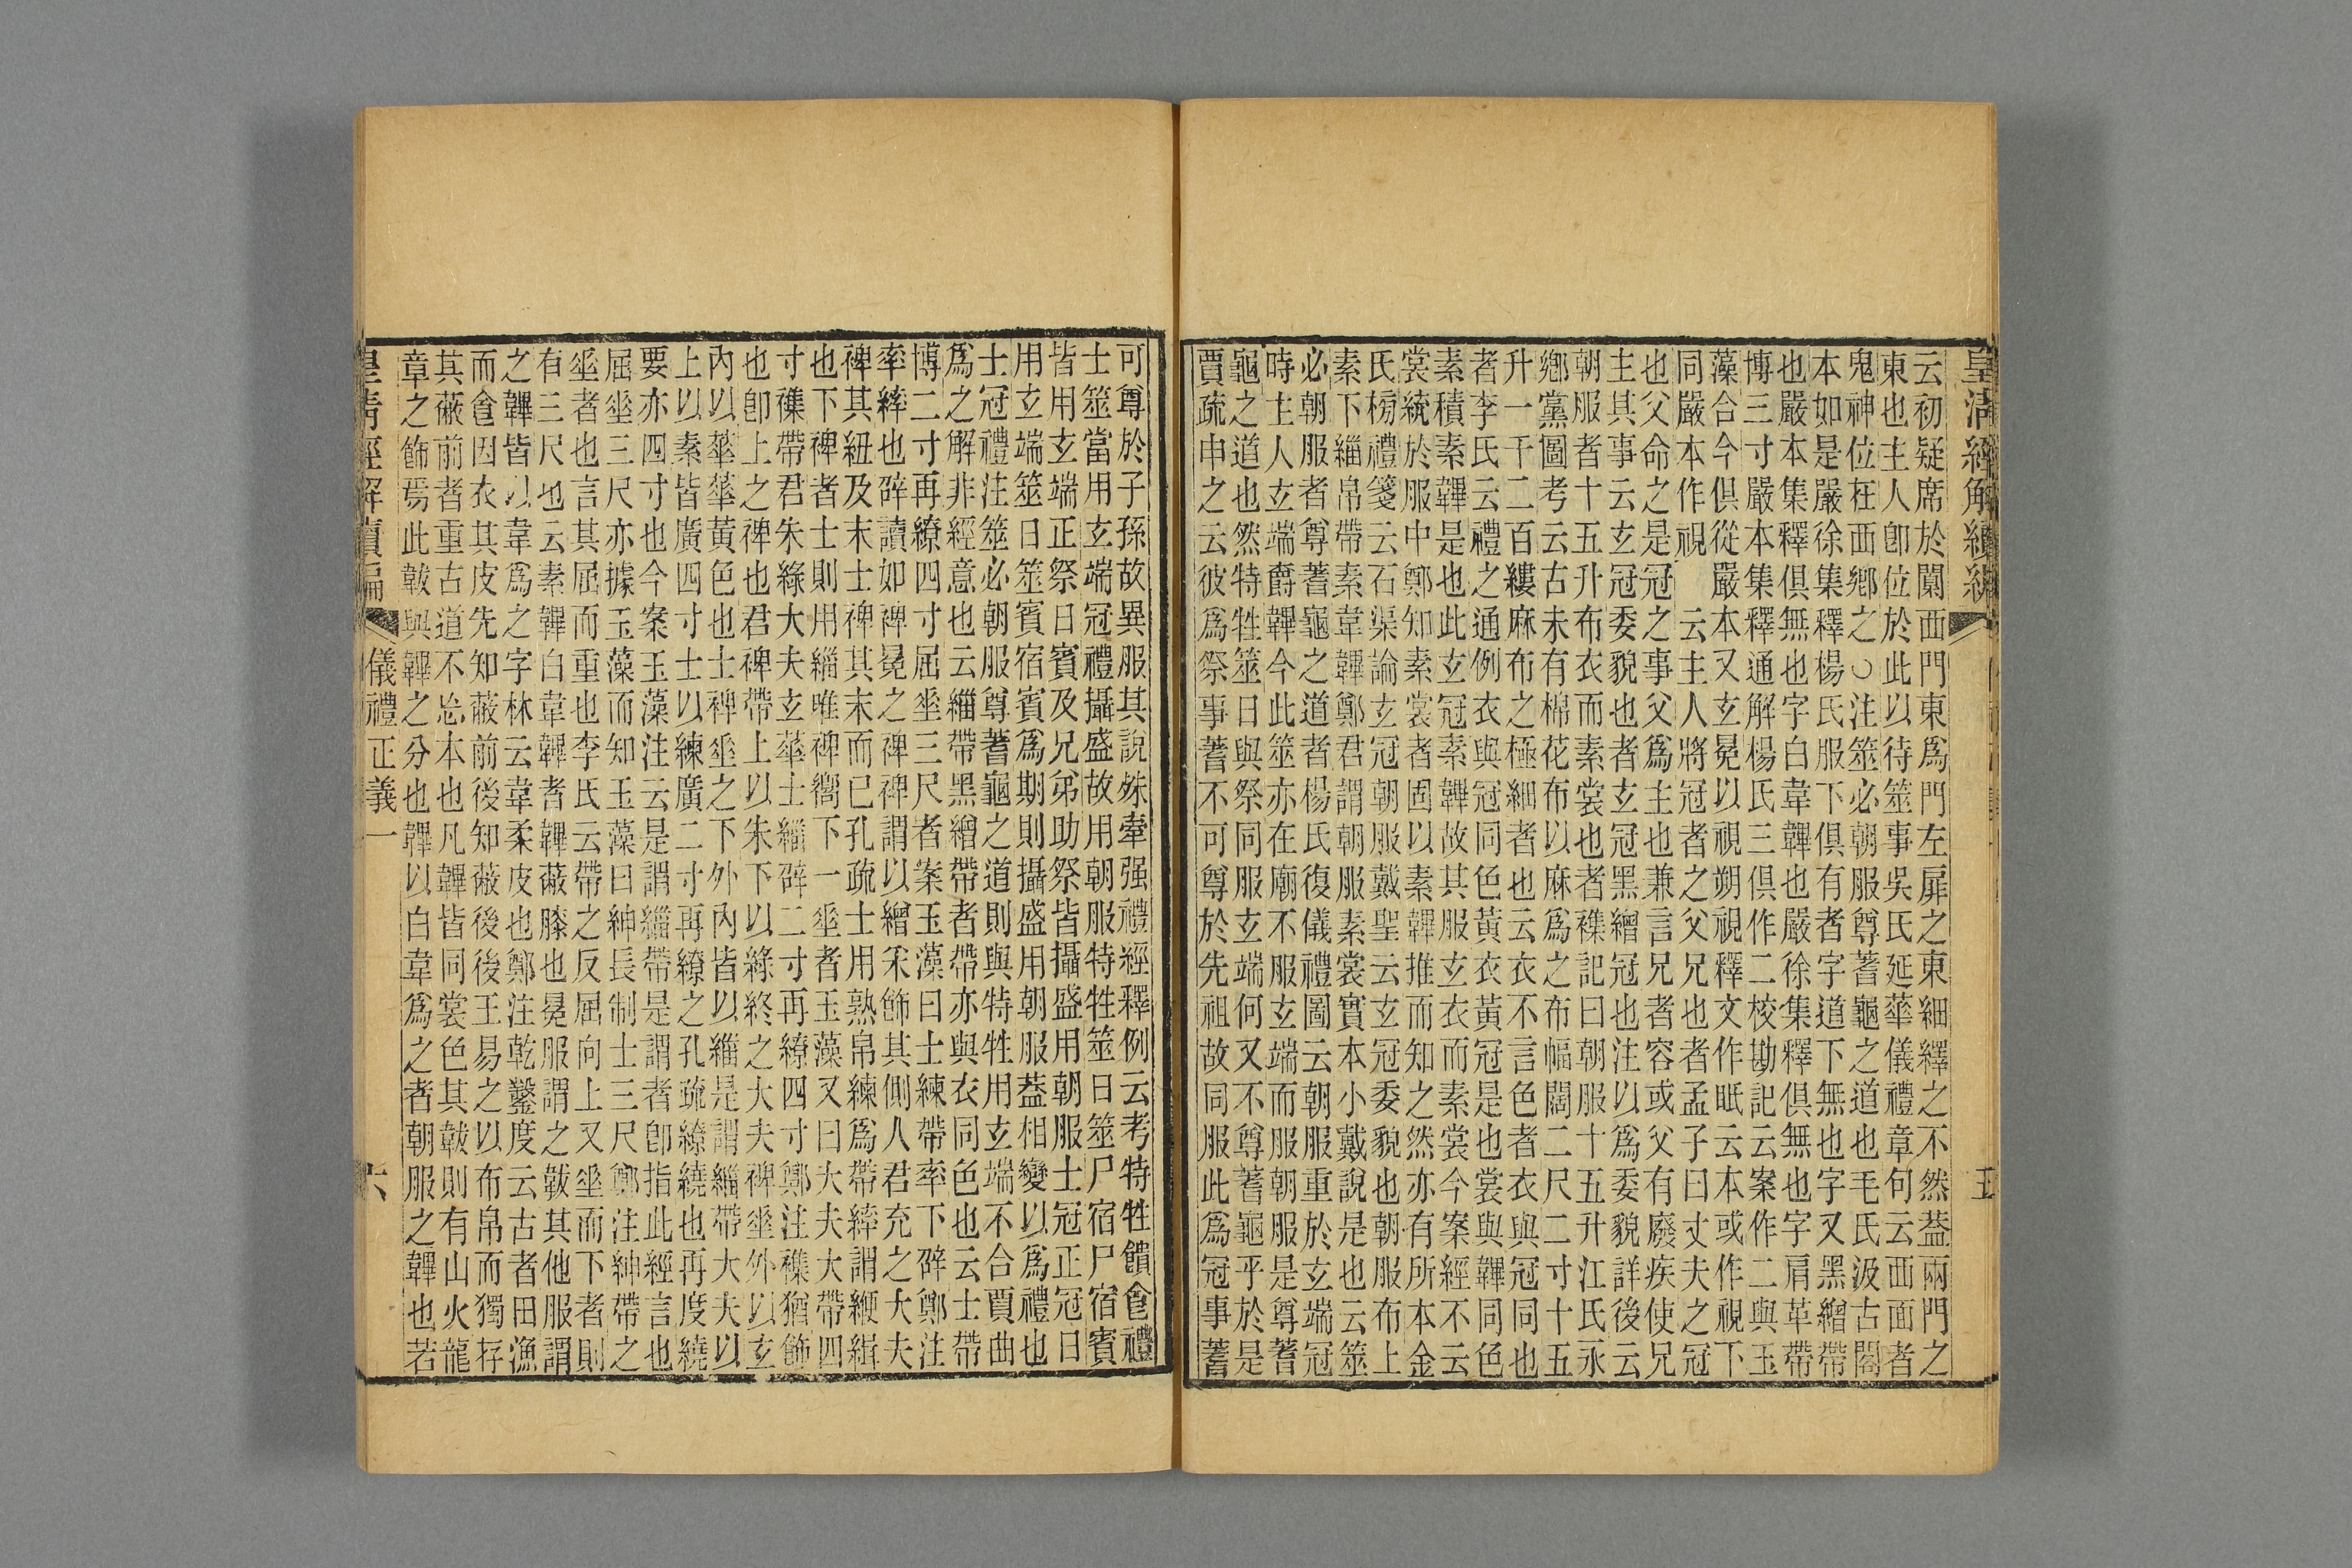 皇清經解續編
五
云初疑席於闑西門東爲門左扉之東細繹之不然葢兩門之
東也主人卽位於此以待筮事吳氏延華儀禮章句云西面者
鬼神位在西鄉之○注筮必朝服尊蓍龜之道也毛氏汲古閣
本如是嚴徐集釋楊氏服下俱有者字道下無也字又黑繒帶
也嚴本集釋俱無也字白韋韠也嚴徐集釋俱無也字肩革帶
博三寸嚴本集釋通解楊氏三俱作二校勘記云案作二與玉
藻合今俱從嚴本又玄冕以視朔視釋文作眂云本或作視下
同嚴本作視　云主人將冠者之父兄也者孟子曰丈夫之冠
也父命之是冠之事父爲主也兼言兄者容或父有廢疾使兄
主其事云玄冠委貌也者玄冠黑繒冠也注以爲委貌詳後云
朝服者十五升布衣而素裳也者襍記曰朝服十五升江氏永
鄉黨圖考云古未有棉花布以麻爲之布幅闊二尺二寸十五
升一千二百縷麻布之極細者也云衣不言色者衣與冠同也
者李氏云禮之通例衣與冠同色黃衣黃冠是也裳與韠同色
素積素韠是也此玄冠素韠故其服玄衣而素裳今案經不云
裳統於服中鄭知素裳者固以素韠推而知之然亦有所本金
氏榜禮箋云石渠論玄冠朝服戴聖云玄冠委貌也朝服布上
素下緇帛帶素韋韠鄭君謂朝服素裳實本小戴說是也云筮
必朝服者尊蓍龜之道者楊氏復儀禮圖云朝服重於玄端冠
時主人玄端爵韠今此筮亦在廟不服玄端而服朝服是尊蓍
龜之道也然特牲筮日與祭同服玄端何又不尊蓍龜乎於是
賈疏申之云彼爲祭事蓍不可尊於先祖故同服此爲冠事蓍
可尊於子孫故異服其說殊牽强禮經釋例云考特牲饋食禮
士筮當用玄端冠禮攝盛故用朝服特牲筮日筮尸宿尸宿賓
皆用玄端正祭日賓及兄弟助祭皆攝盛用朝服士冠正冠日
用玄端筮日筮賓宿賓爲期則攝盛用朝服葢相變以爲禮也
士冠禮注筮必朝服尊蓍龜之道則與特牲用玄端不合賈曲
爲之解非經意也云緇帶黑繒帶者帶亦與衣同色也云士帶
博二寸再繚四寸屈垂三尺者案玉藻曰士練帶率下辟鄭注
率繂也辟讀如裨冕之裨裨謂以繒采飾其側人君充之大夫
裨其紐及末士裨其末而已孔疏士用熟帛練爲帶繂謂緶緝
也下裨者士則用緇唯裨嚮下一垂者玉藻又曰大夫大帶四
寸襍帶君朱綠大夫玄華士緇辟二寸再繚四寸鄭注襍猶飾
也卽上之裨也君裨帶上以朱下以綠終之大夫裨垂外以玄
內以華華黃色也士裨垂之下外內皆以緇是謂緇帶大夫以
上以素皆廣四寸士以練廣二寸再繚之孔疏繚繞也再度繞
要亦四寸也今案玉藻注云是謂緇帶是謂者卽指此經言也
屈垂三尺亦據玉藻而知玉藻曰紳長制士三尺鄭注紳帶之
垂者也言其屈而重也李氏云帶之反屈向上又垂而下者則
有三尺也云素韠白韋韠者韠蔽膝也冕服謂之韍其他服謂
之韠皆以韋爲之字林云韋柔皮也鄭注乾鑿度云古者田漁
而食因衣其皮先知蔽前後知蔽後後王易之以布帛而獨存
其蔽前者重古道不忘本也凡韠皆同裳色其韍則有山火龍
章之飾焉此韍與韠之分也韠以白韋爲之者朝服之韠也若
皇清經解續編
儀禮正義一
六